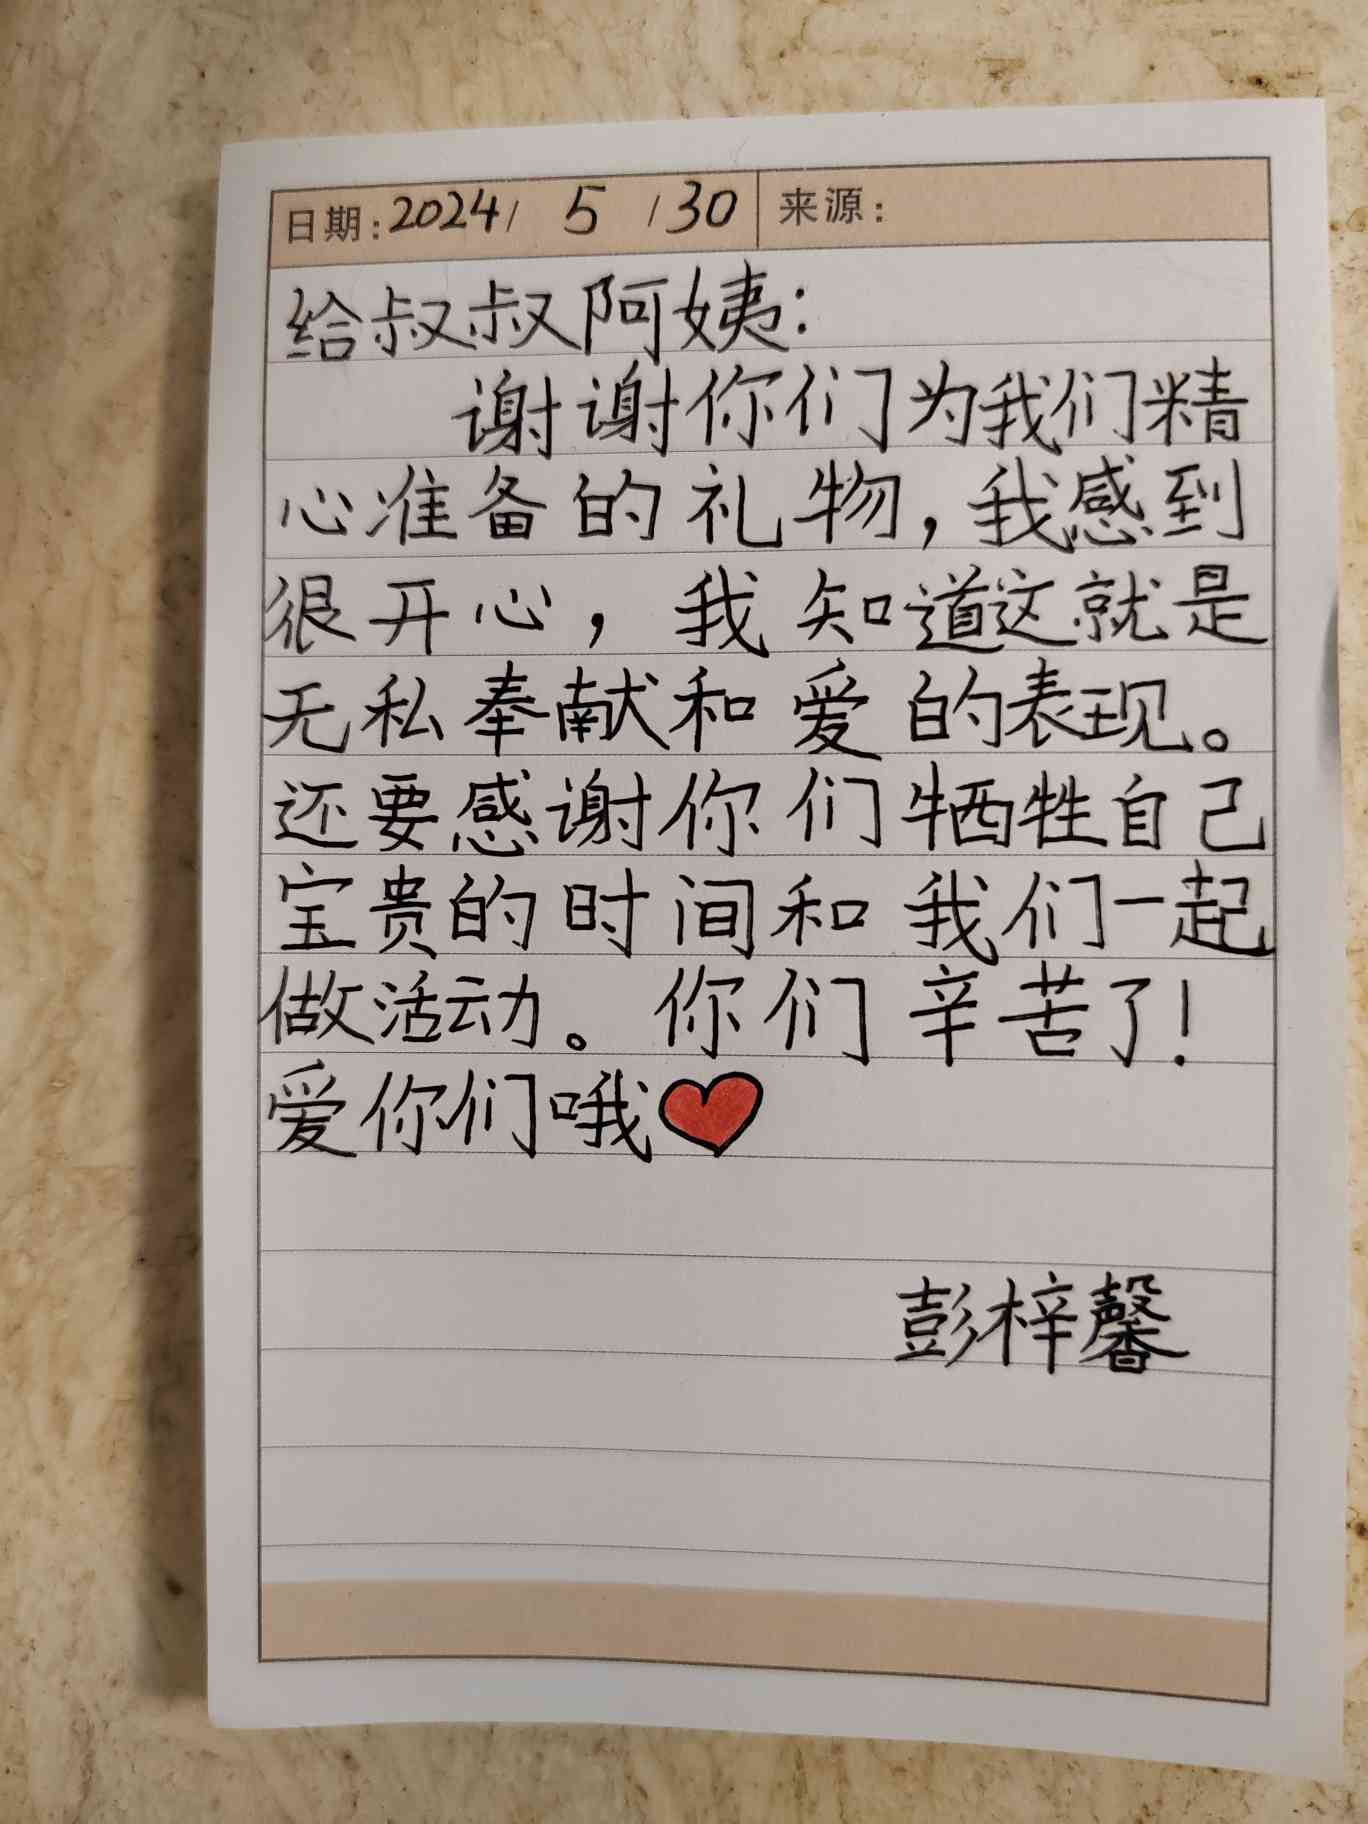 日期：2024/ 5 /30 来源：
给叔叔阿姨：
谢谢你们为我们精
心准备的礼物，我感到
很开心，我知道这就是
无私奉献和爱的表现。
还要感谢你们牺牲自己
宝贵的时间和我们一起
做活动。你们辛苦了！
爱你们哦
彭梓馨